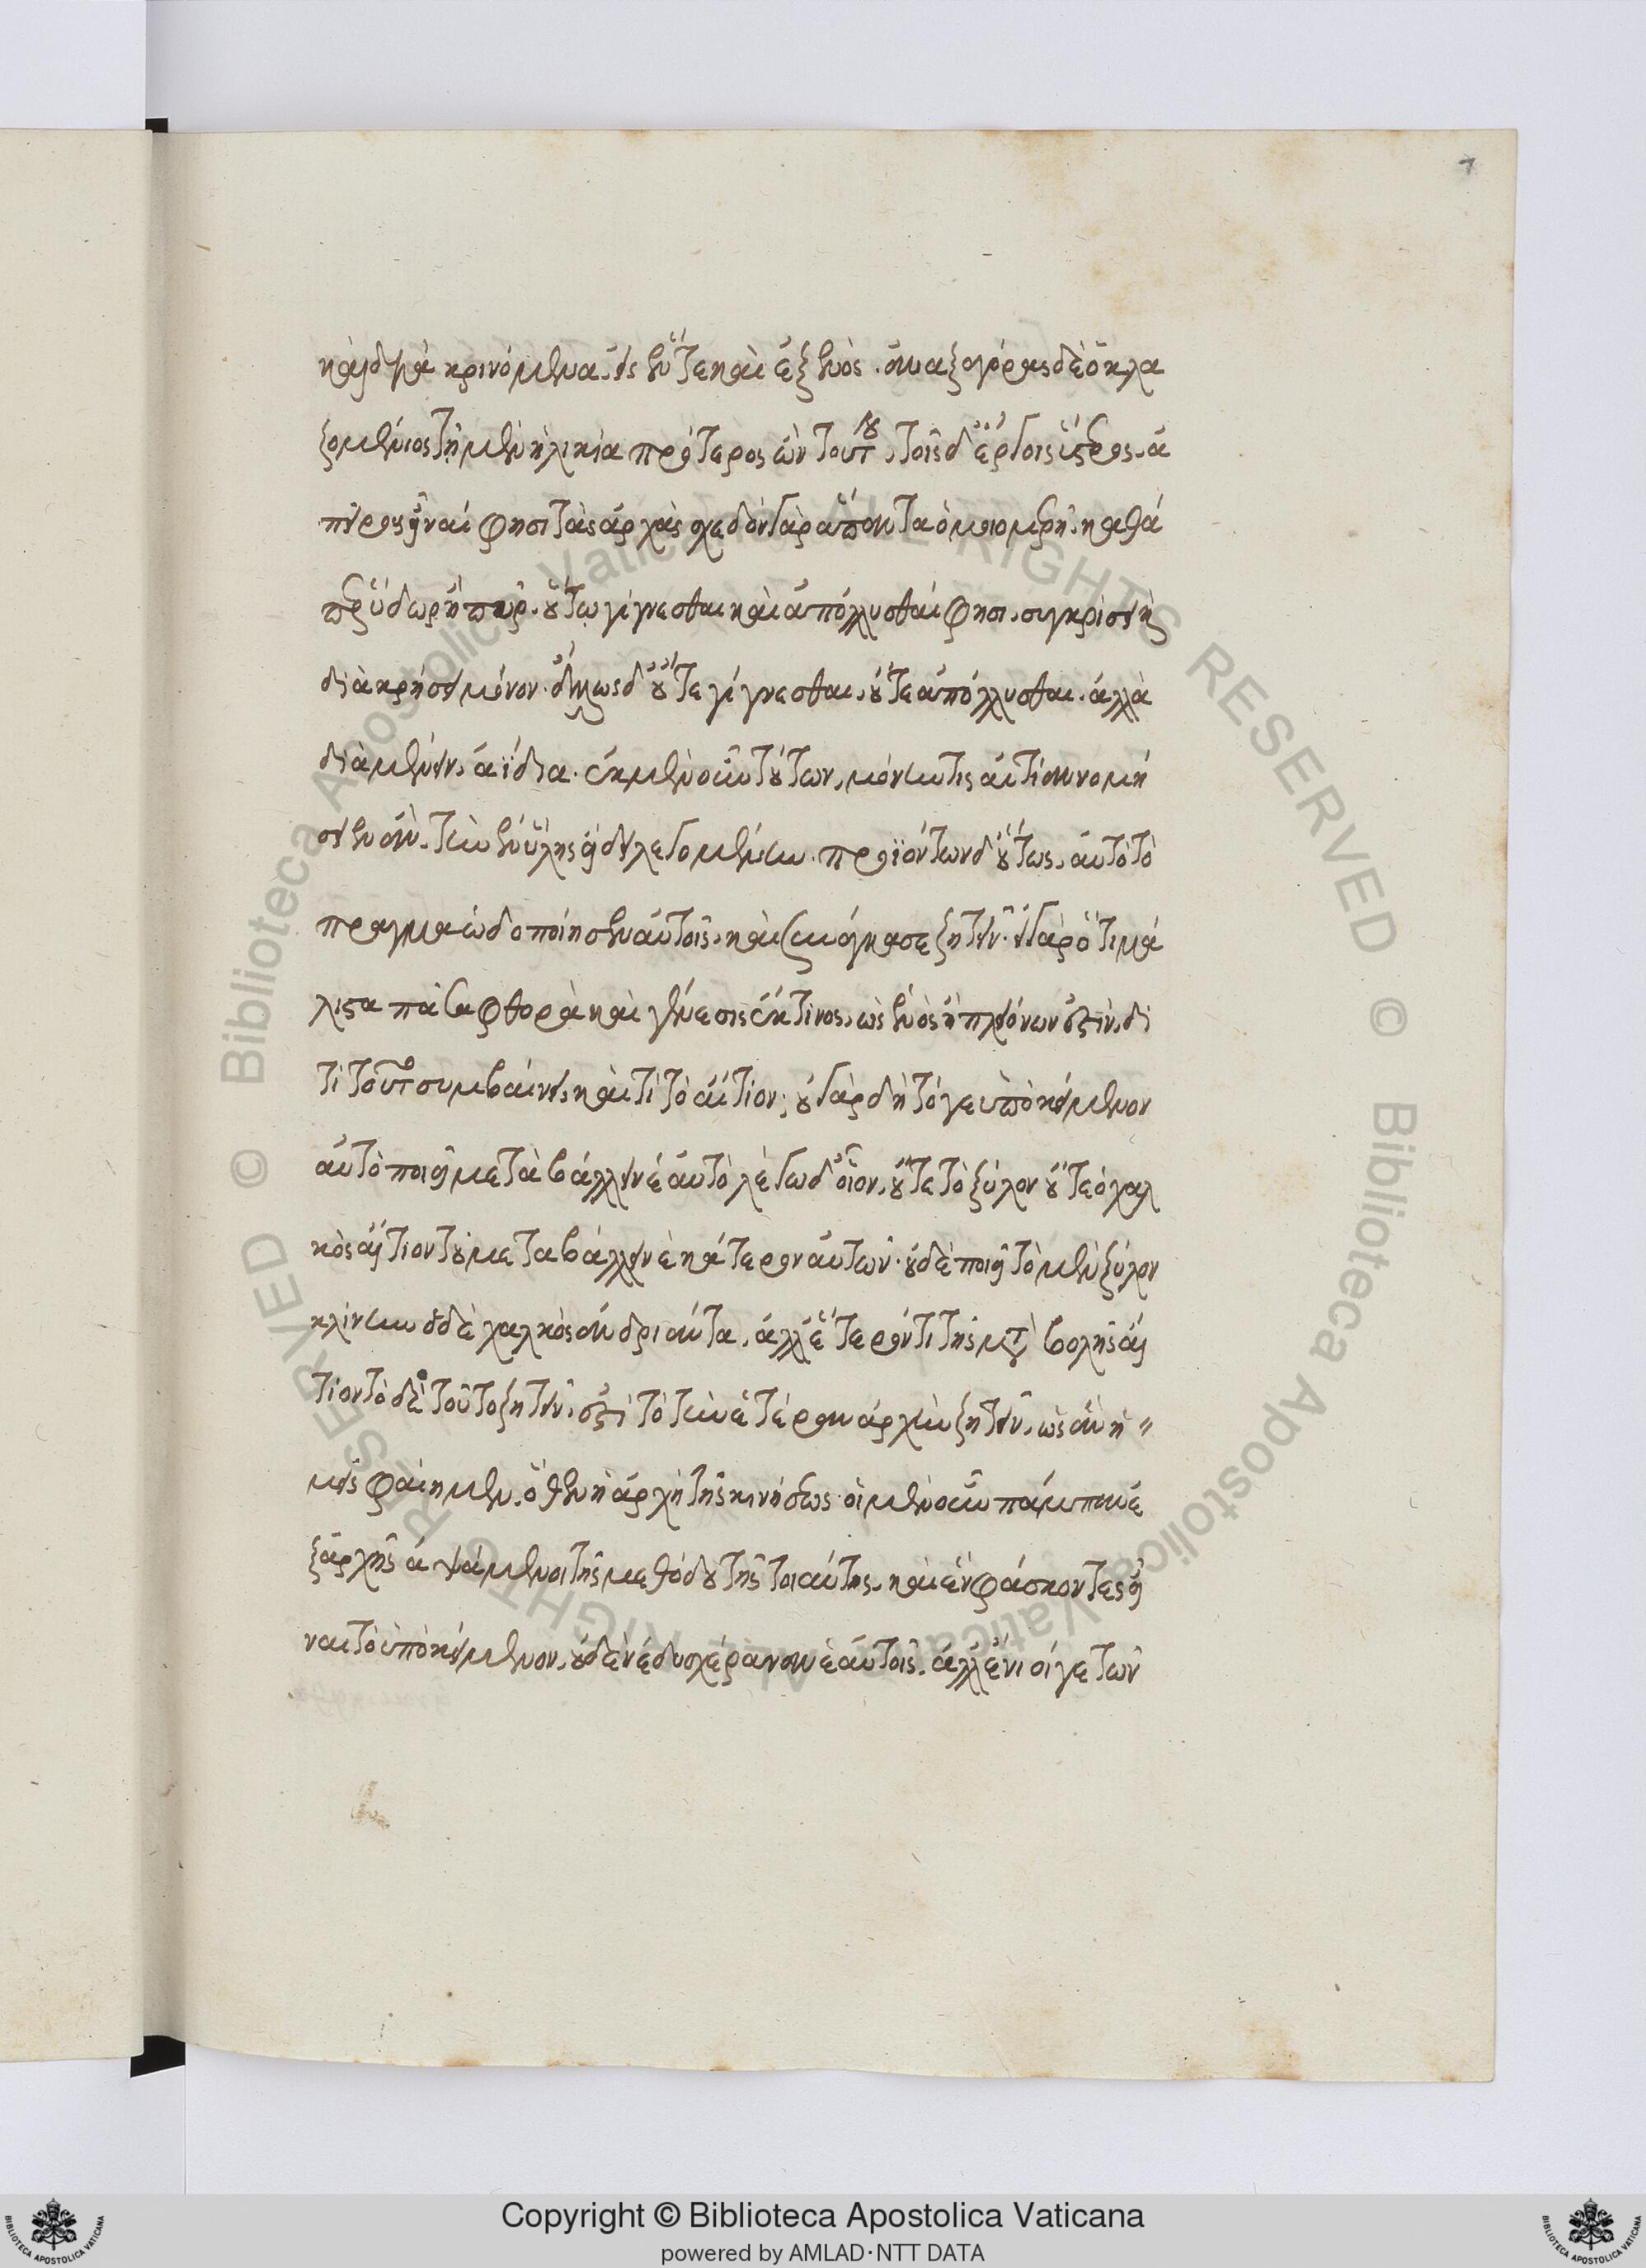 7
καὶ διακρινόμενα εἰς ἕν τε καὶ ἐξ ἑνός. ἀναξαγόρας δὲ ὁ κλα
ζομένιος τῇ μὲν ἡλικίᾳ πρότερος ὢν τούτου, τοῖς δ' ἔργοις ὕστερος. ἀ
πείρους εἶναί φησι τὰς ἀρχάς σχεδὸν γὰρ ἅπαντα ὁμοιομερῆ. καθά
περ ὕδωρ ἢ πῦρ. οὕτω γίγνεσθαι καὶ ἀπόλλυσθαί φησι. συγκρίσει καὶ
διακρήσει μόνον. ἄλλως δ' οὔτε γίγνεσθαι. οὔτε ἀπόλλυσθαι. ἀλλὰ
διαμένειν, ἀΐδια. ἐκ μὲν οὖν τούτων, μόνην τις αἰτίαν νομή
σειεν ἂν. τὴν ἐν ὕλης εἴδει λεγομένην. προϊόντων δ' οὕτως, αὐτὸ τὸ
πραγμα ὡδοποίησεν αὐτοῖς. καὶ συνηνάγκασε ζητεῖν. εἰ γὰρ ὅτι μά
λιστα πᾶσα φθορὰ καὶ γένεσις ἔκ τινος, ὡς ἑνὸς ἢ πλειόνων ἐστὶν. δι
τί τοῦτο συμβαίνει, καὶ τί τὸ αἴτιον; οὐ γὰρ δὴ τό γε ὑποκείμενον
αὐτὸ ποιεῖ μεταβάλλειν ἑαυτὸ λέγω δ' οἷον. οὔτε τὸ ξύλον οὔτε ὁ χαλ
κὸς αἴτιον τοῦ μεταβάλλειν ἑκάτερον αὐτῶν. οὐδὲ ποιεῖ τὸ μὲν ξύλον
κλίνην ὁ δὲ χαλκὸς ἀνδριάντα. ἀλλ' ἕτερόν τι τῆς μεταβολῆς αἴ
τιον τὸ δὲ τοῦτο ζητεῖν. ἐστὶ τὸ τὴν ἑτέραν ἀρχὴν ζητεῖν, ὡς ἂν ἡ
μεῖς φαίημεν. ὅθεν ἡ ἀρχὴ τῆς κινήσεως. οἱ μὲν οὖν πάμπαν ἐ
ξἀρχῆς ἁψάμενοι τῆς μεθόδου τῆς τοιαύτης. καὶ ἓν φάσκοντες εἶ
ναι τὸ ὑποκείμενον. οὐδὲν ἐδυσχέραναν ἑαυτοῖς. ἀλλ' ἔνιοί γε τῶν
Copyright © Biblioteca Apostolica Vaticana
powered by AMLAD·NTT DATA